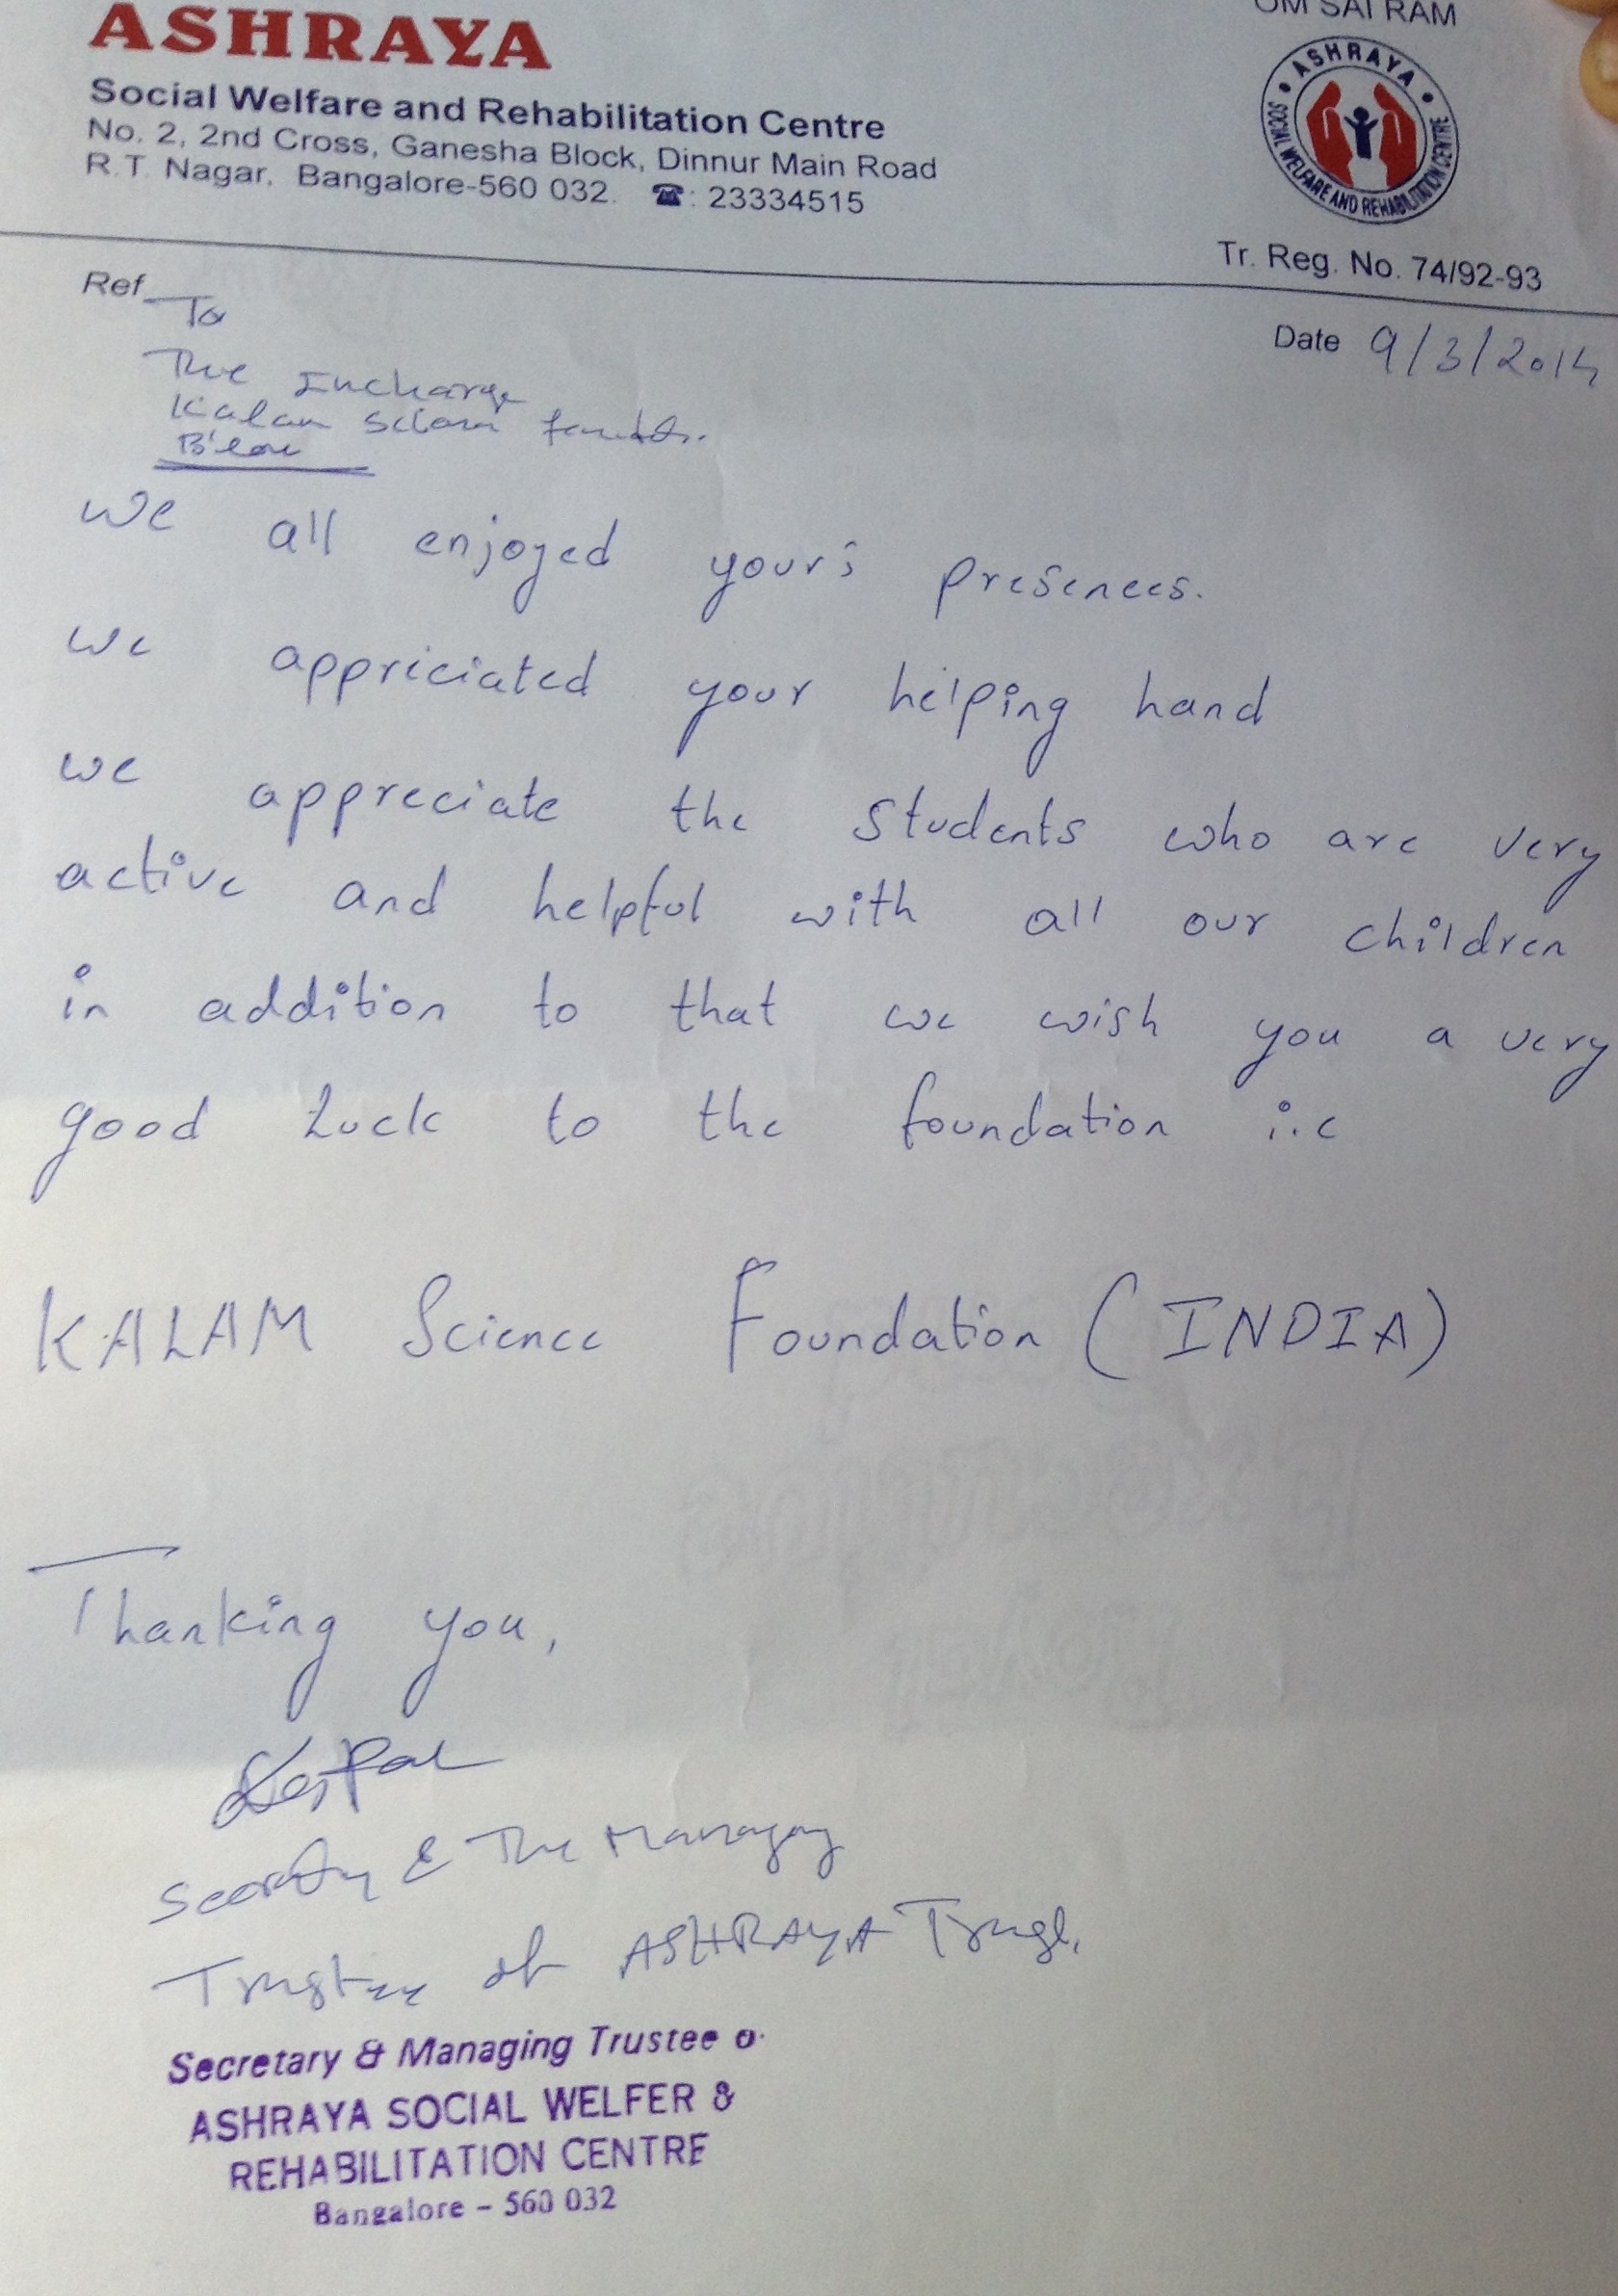 OM SAI RAM
ASHRAYA
Social Welfare and Rehabilitation Centre
No. 2, 2nd Cross, Ganesha Block, Dinnur Main Road
R.T. Nagar, Bangalore-560 032. ☎: 23334515
ASHRAYA
SOCIAL WELFARE AND REHABILITATION CENTRE
Tr. Reg. No. 74/92-93
Ref
Date 9/3/2014
To
The Incharge
Kalam
B'lore
We all enjoyed your's presences.
we appriciated your helping hand
we appreciate the students who are very
active and helpful with all our children
in addition to that we wish you a very
good Luck to the foundation i.e
KALAM Science Foundation (INDIA)
Thanking you,
& The Managing
Trustee of ASHRAYA
Secretary & Managing Trustee o
ASHRAYA SOCIAL WELFER &
REHABILITATION CENTRE
Bangalore - 560 032